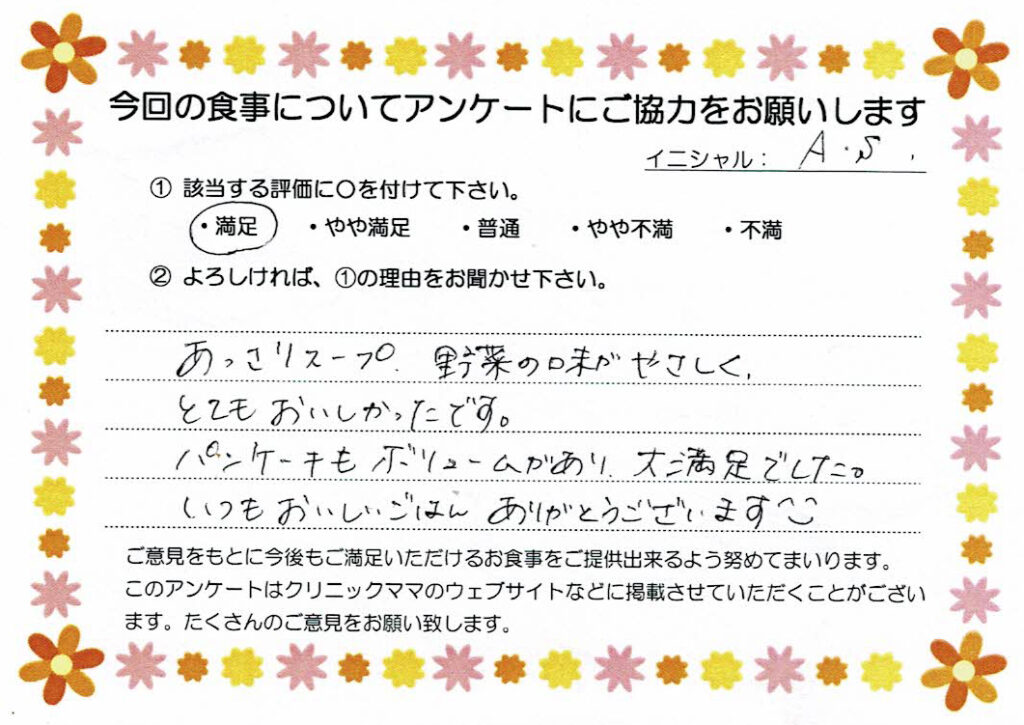 今回の食事についてアンケートにご協力をお願いします
イニシャル： A．S．
① 該当する評価に〇を付けて下さい。
・満足 ・やや満足 ・普通 ・やや不満 ・不満
② よろしければ、①の理由をお聞かせ下さい。
あっさりスープ、野菜の味がやさしく、
とてもおいしかったです。
パンケーキもボリュームがあり、大満足でした。
いつもおいしいごはん ありがとうございます^^
ご意見をもとに今後もご満足いただけるお食事をご提供出来るよう努めてまいります。
このアンケートはクリニックママのウェブサイトなどに掲載させていただくことがござい
ます。たくさんのご意見をお願い致します。